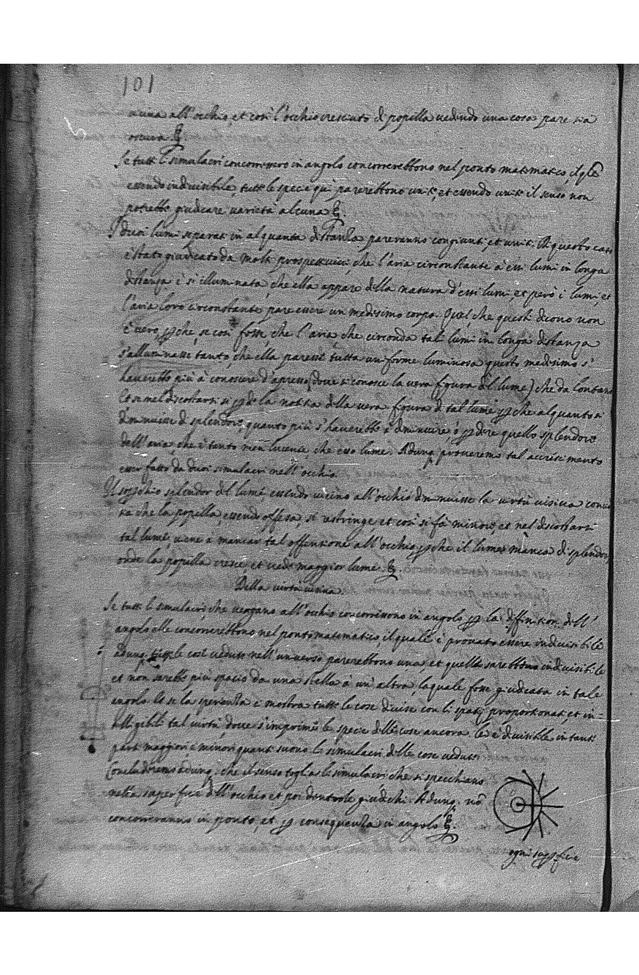 101
all'occhio, et così l'occhio cresciuto di popilla vedendo una cosa pare
oscura
Se tutti li simulacri concorressero in angolo concorrerebbono nel ponto matematico, il
essendo indivisibile, tutte le specie qui parerebbono et essendo il senso non
potrebbe giudicare varietà alcuna
I duoi lumi separati in alquanta parerano congiunti et A questo caso
è stato giudicato da molti prospettivici che l'aria circonstante à essi lumi in longa
distanza è sì illuminata, che ella appare della natura d'essi lumi, et però i lumi, et
l'aria loro circonstante, pare essere un medesimo corpo. Quel che questi dicono non
è vero, se così fosse, che l'aria che circonda tal lumi in longa distanza
s'alluminasse tanto, che ella paresse tutta un forme luminosa questo medesimo s'
haverebbe più à conoscere d'apresso, dove si conosce la vera figura del lume, che da lontano
discostarsi si la notitia della vera figura di tal lume che alquanto
diminuisce di splendore, quanto più s'haverebbe à diminuire ò dire quello splendore
dell'aria, che è tanto men lucente, che eso lume. Adunq. proveremo tal accrescimento
esser fatto da duoi simulacri nell'occhio.
splendor del lume essendo vicino all'occhio diminuisse la virtù visiva
che la popilla, essendo offesa, si ristringe, et così si fà minore, et nel discostarsi
tal lume viene à mancar tal offensione all'occhio, che il lume manca di splendore,
onde la popilla cresce, et vede maggior lume
Della virtù visiva
Se tutti li simulacri, che vengano all'occhio concorrissino in angolo la diffinition dell'
angolo elle concorrerebbono nel ponto matematico il quale è provato essere indivisibile
adunq. le cose vedute nell'universo parerebbono una, et quella sarebbe indivisibile
et non sarebbe più spacio da una stella à un'altra, la quale fosse giudicata in tale
angolo. Et se la sperientia ci mostra tutte le cose divise con li spatii proportionati, et
tal virtù, dove s'imprime le specie delle cose ancora lei è divisibile in tante
parti maggiori e minori quanti suono li simulacri delle cose vedute
Concluderemo adunq. che il senso toglia li simulacri che si specchiano
nella superficie dell'occhio et poi dentro le giudichi. Adunq. nō
concorreranno in ponto, et consequentia in angolo
ogni